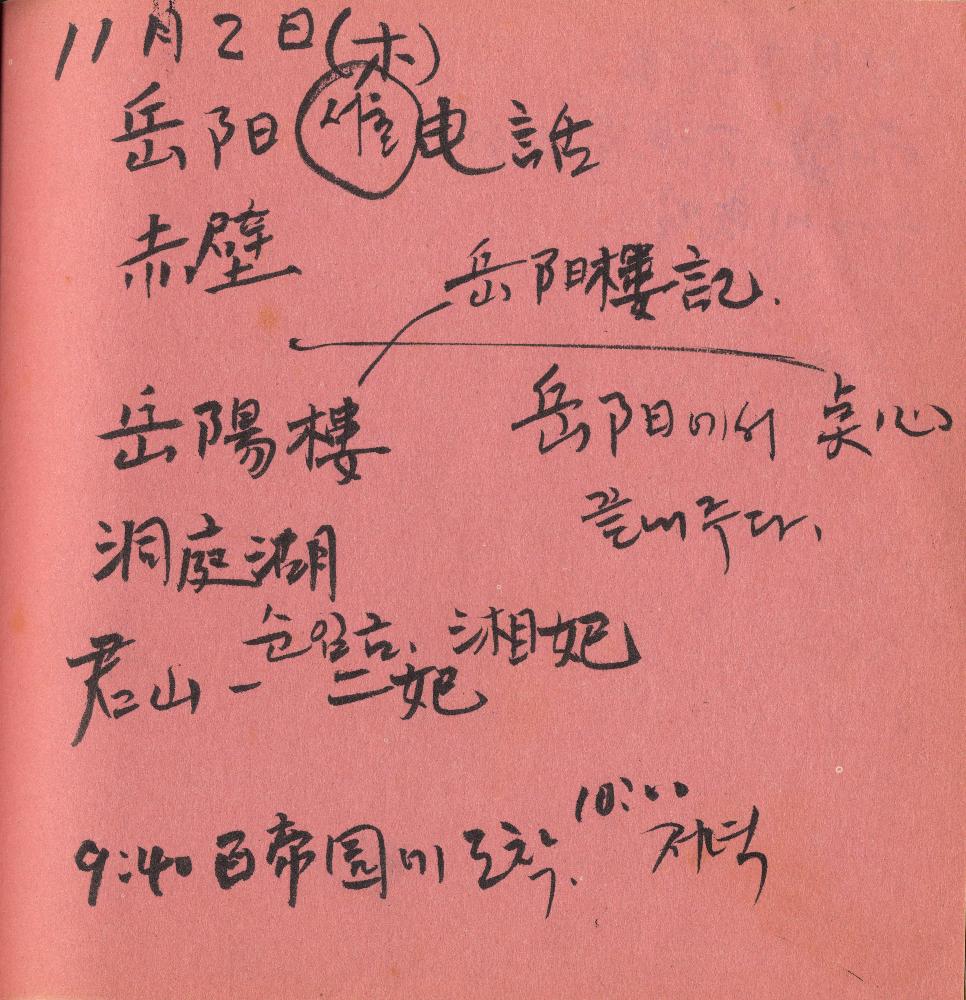 11月2日(木)
岳阳 서울 电話
赤壁
岳阳樓記.
岳陽樓
岳阳에서 点心
끝내주다.
洞庭湖
君山 - 순임금. 湘妃
二妃
9:40 百帝園에 도착. 10:00
저녁